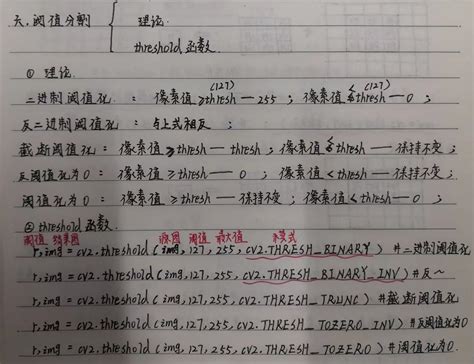 六、阈值分割 { 理论
threshold 函数.
① 理论
(127) (127)
二进制阈值化 : 像素值≥thresh—255 ; 像素值≤thresh—0 ;
反二进制阈值化: 与上式相反 ;
截断阈值化 : 像素值≥thresh—thresh ; 像素值≤thresh—保持不变 ;
反阈值化为0 : 像素值≥thresh—0 ; 像素值<thresh—保持不变 ;
阈值化为0 : 像素值≥thresh—保持不变 ; 像素值<thresh—0 ;
② threshold 函数.
阈值 结果图 源图 阈值 最大值 模式
r,img = cv2.threshold(img,127,255,cv2.THRESH_BINARY) #二进制阈值化
r,img = cv2.threshold(img,127,255,cv2.THRESH_BINARY_INV) #反~
r,img = cv2.threshold(img,127,255,cv2.THRESH_TRUNC) #截断阈值化
r,img = cv2.threshold(img,127,255,cv2.THRESH_TOZERO_INV) #反阈值化为0
r,img = cv2.threshold(img,127,255,cv2.THRESH_TOZERO) #阈值化为0.